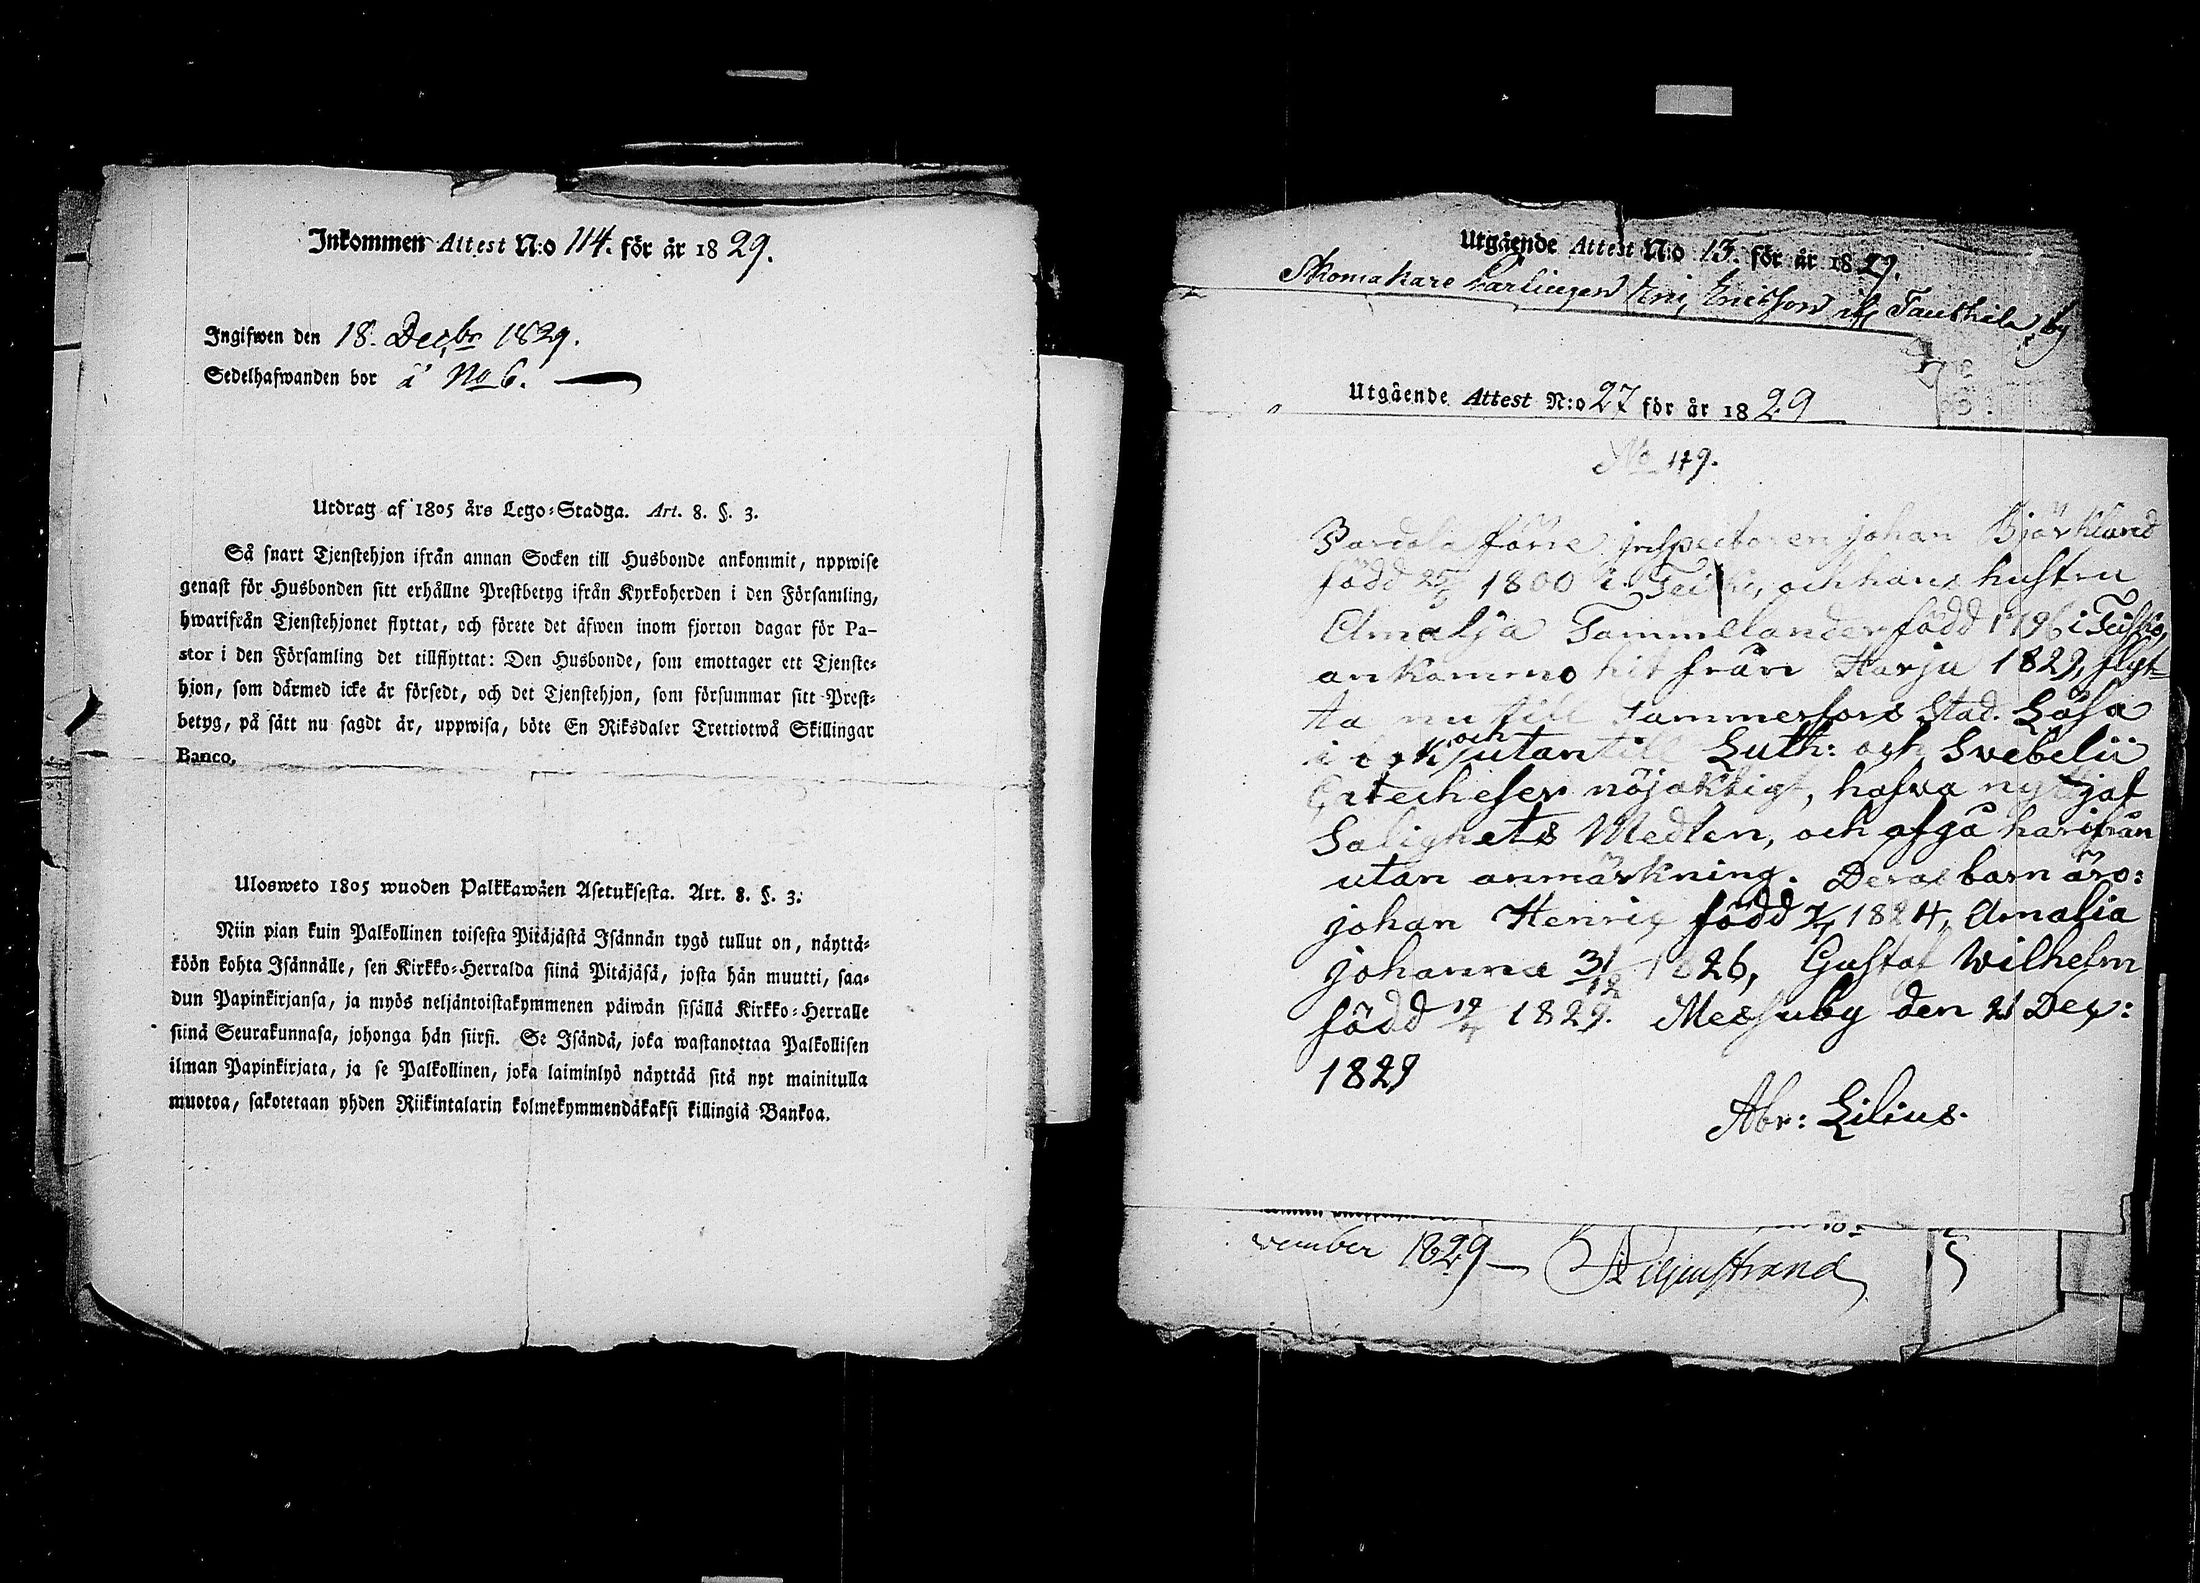 Inkommen Attest N:o 114. för år 1829.
Ingifwen den 18. Decbr 1829.
Sedelhafwanden bor å No 6.
Utdrag af 1805 års Lego-Stadga. Art. 8. §. 3.
Så snart Tjenstehjon ifrån annan Socken till Husbonde ankommit, nppwise
genast för Husbonden sitt erhållne Prestbetyg ifrån Kyrkoherden i den Församling,
hwarifrån Tjenstehjonet flyttat, och förete det äfwen inom fjorton dagar för Pa-
stor i den Församling det tillflyttat: Den Husbonde, som emottager ett Tjenste-
hjon, som därmed icke är försedt, och det Tjenstehjon, som försummar sitt Prest-
betyg, på sätt nu sagdt är, uppwisa, böte En Riksdaler Trettiotwå Skillingar
Banco.
Ulosweto 1805 wuoden Palkkawäen Asetuksesta. Art. 8. §. 3.
Niin pian kuin Palkollinen toisesta Pitäjästä Isännän tygö tullut on, näyttä-
köön kohta Isännälle, sen Kirkko-Herralda siinä Pitäjäsä, josta hän muutti, saa-
dun Papinkirjansa, ja myös neljäntoistakymmenen päiwän sisällä Kirkko-Herralle
siinä Seurakunnasa, johonga hän siirsi. Se Isändä, joka wastanottaa Palkollisen
ilman Papinkirjata, ja se Palkollinen, joka laiminlyö näyttää sitä nyt mainitulla
muotoa, sakotetaan yhden Riikintalarin kolmekymmendäkaksi killingiä Bankoa.
Utgående Attest N:o 13. för år 1829.
Skomakare Ericsson by
Utgående Attest N:o 27 för år 1829
No 119.
förre jnspectoren johan Björklund
född 25/5 1800 i och hans hustru
Amalja Tammelander född 1796 i
ankomne hit från Harju 1829, flyt-
ta nu till Tammerfors Stad. Läsa
i bok och utantill Luth: och Svebelii
Catecheser nöjaktigt, hafva nyttjat
Salighets Medlen, och afgå härifrån
utan anmärkning. Deras barn äro:
johan Henric född 1824, Amalia
johanna 31/12 1826, Gustaf Wilhelm
född 1829. Messuby den 21 Dec:
1829
Abr: Lilius.
vember 1829